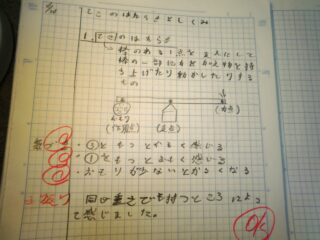 てこのはたらきとしくみ
1. てこのはたらき
棒のある1点を支えにして
棒の一部に力を加え物を持
ち上げたり動かしたりする
もの
おもり
(作用点) (支点) (力点)
・③をもつとかるく感じる
・①をもつとおもく感じる
・おもりが少ないとかるくなる
同じ重さでも持つところによっ
て感じました。
OK